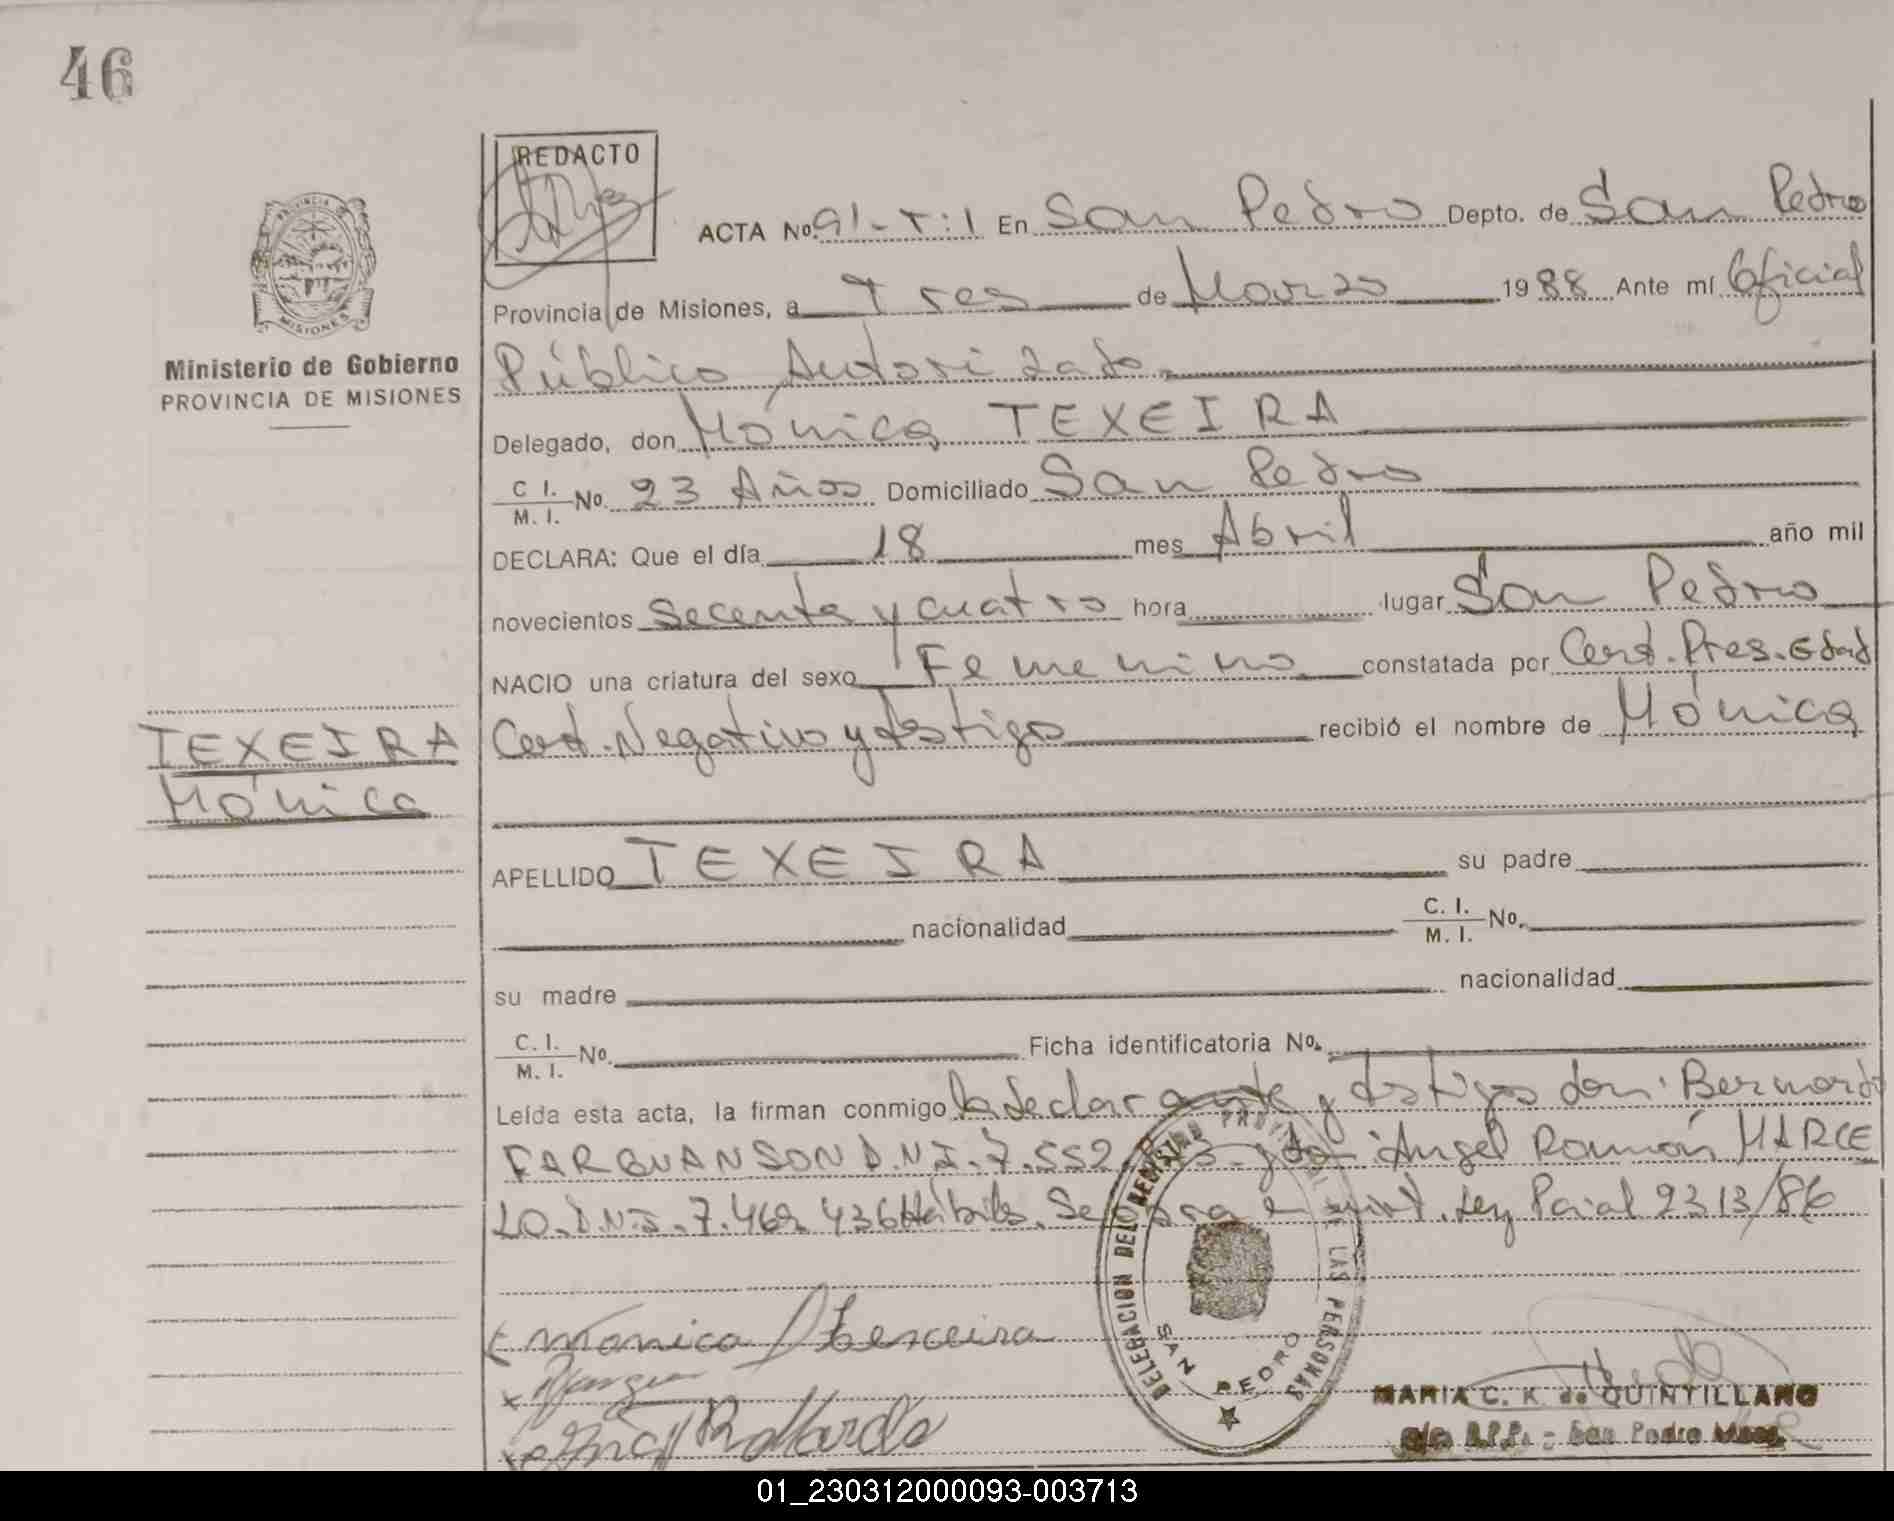 46
REDACTO
ACTA No. 91-T:1 En San Pedro Depto. de San Pedro
Provincia de Misiones, a Tres de Marzo 1988 Ante mí Oficial
Público Autorizado.
Delegado, don Mónica TEXEIRA
C. I. / M. I. No. 23 Años Domiciliado San Pedro
DECLARA: Que el día 18 mes Abril año mil
novecientos Secenta y cuatro hora lugar San Pedro
NACIO una criatura del sexo Femenino constatada por Cert. Pres. Edad
Cert. Negativo y testigo recibió el nombre de Mónica
APELLIDO TEXEIRA su padre
nacionalidad C. I. / M. I. No.
su madre nacionalidad
C. I. / M. I. No. Ficha identificatoria No.
Leída esta acta, la firman conmigo la declarante y testigos don: Bernardo
FARQUANSON D.N.I. 7.552. y don: Angel Ramón MARCE
LO. D.N.I. 7.469.436 Hábiles. Ley Pcial 2313/86
PROVINCIA DE
MISIONES
Ministerio de Gobierno
PROVINCIA DE MISIONES
TEXEIRA
Mónica
DELEGACION DEL REGISTRO PROVINCIAL DE LAS PERSONAS
SAN PEDRO
Monica
MARIA C. K. de QUINTILLANO
San Pedro Mnes.
01_230312000093-003713